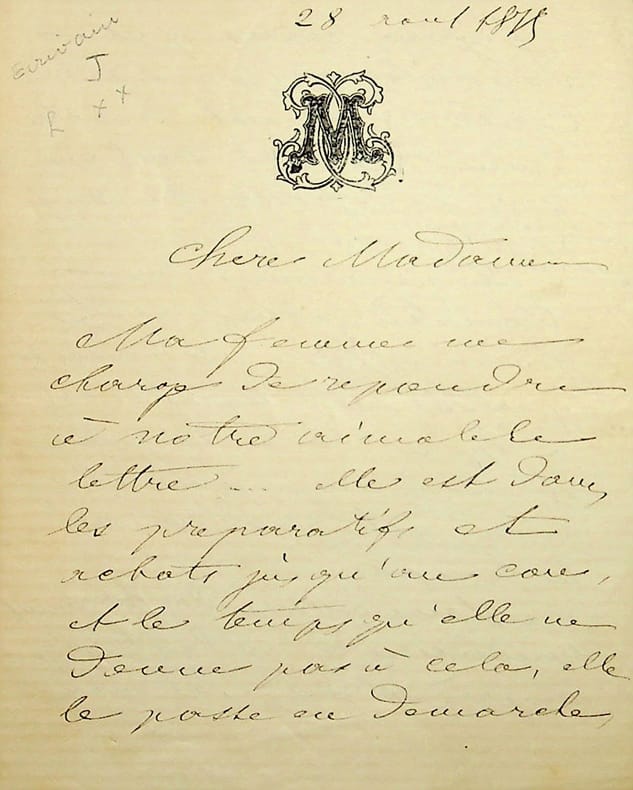 28 aout 1875
ecrivain
J
L x x
M
Chere Madame
Ma femme me
charge de repondre
à votre aimable
lettre ... elle est dans
les preparatifs et
achats jusqu'au cou,
et le temps qu'elle ne
donne pas à cela, elle
le passe en demarche,